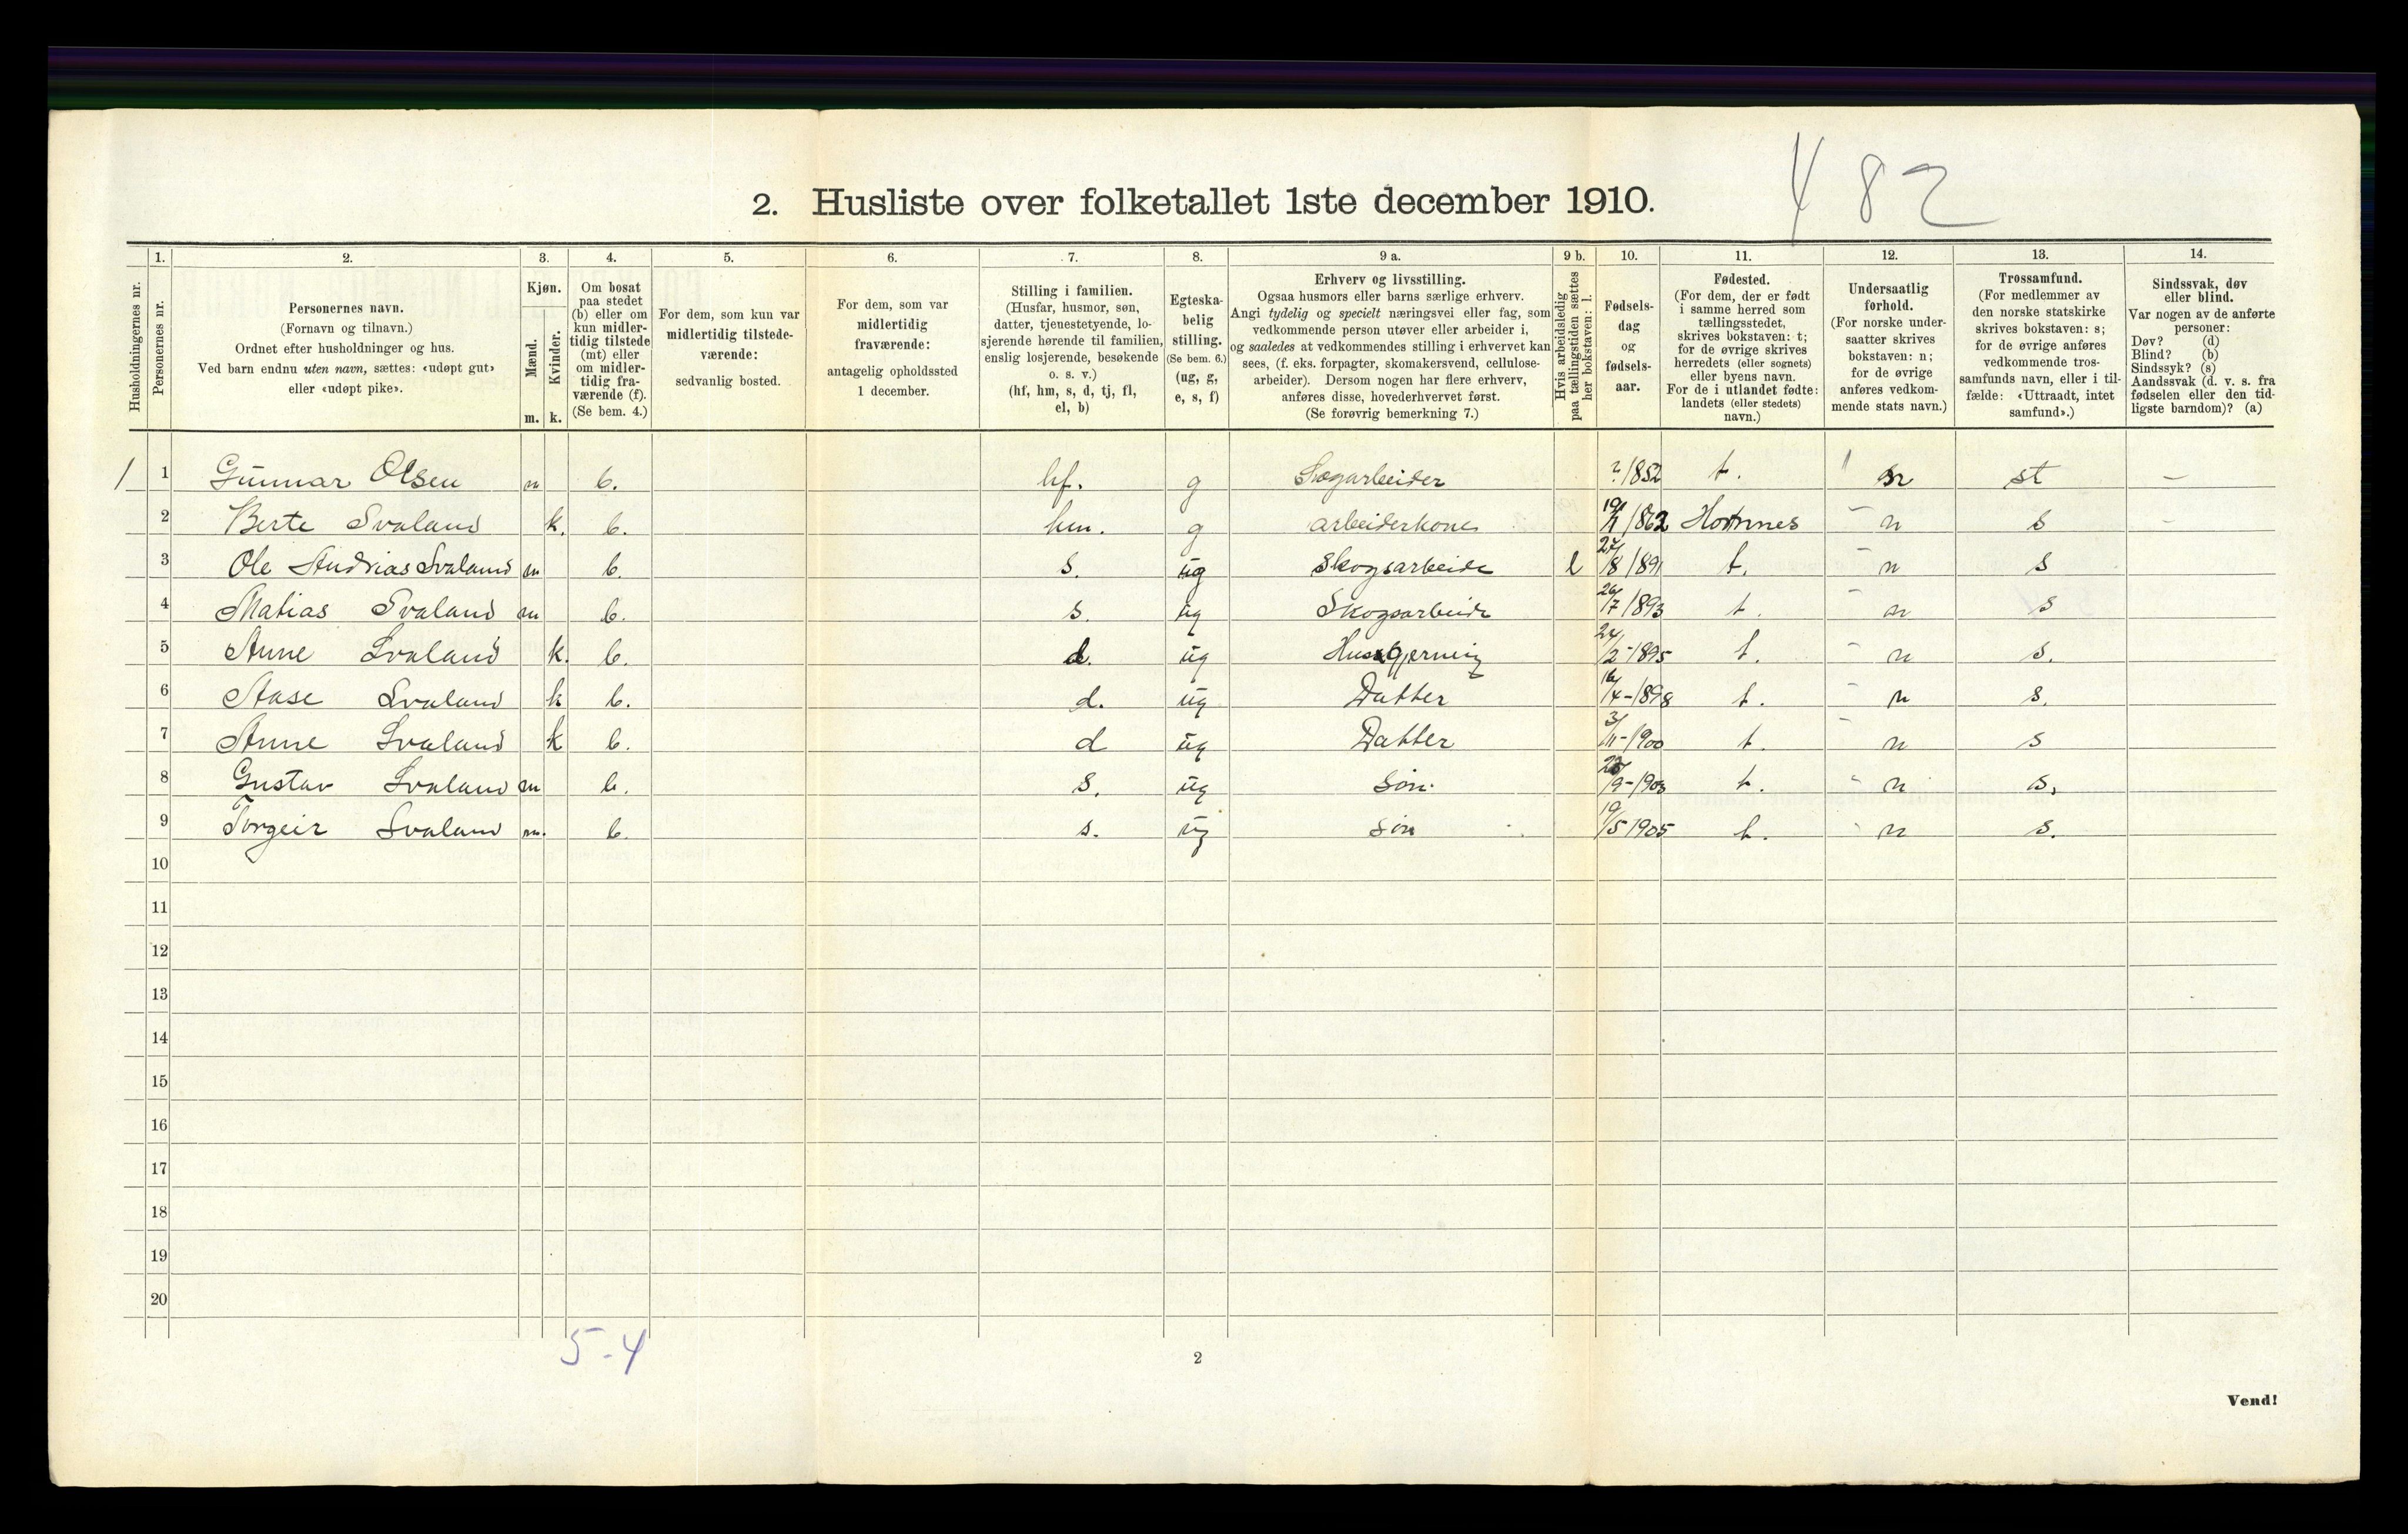 482
2. Husliste over folketallet 1ste december 1910.
Husholdningernes nr.
1. Personernes nr.
2. Personernes navn.
(Fornavn og tilnavn.)
Ordnet efter husholdninger og hus.
Ved barn endnu uten navn, sættes: «udøpt gut»
eller «udøpt pike».
3. Kjøn.
Mænd. m.
Kvinder. k.
4. Om bosat
paa stedet
(b) eller om
kun midler-
tidig tilstede
(mt) eller
om midler-
tidig fra-
værende (f).
(Se bem. 4.)
5. For dem, som kun var
midlertidig tilstede-
værende:
sedvanlig bosted.
6. For dem, som var
midlertidig
fraværende:
antagelig opholdssted
1 december.
7. Stilling i familien.
(Husfar, husmor, søn,
datter, tjenestetyende, lo-
sjerende hørende til familien,
enslig losjerende, besøkende
o. s. v.)
(hf, hm, s, d, tj, fl,
el, b)
8. Egteska-
belig
stilling.
(Se bem. 6.)
(ug, g,
e, s, f)
9 a. Erhverv og livsstilling.
Ogsaa husmors eller barns særlige erhverv.
Angi tydelig og specielt næringsvei eller fag, som
vedkommende person utøver eller arbeider i,
og saaledes at vedkommendes stilling i erhvervet kan
sees, (f. eks. forpagter, skomakersvend, cellulose-
arbeider). Dersom nogen har flere erhverv,
anføres disse, hovederhvervet først.
(Se forøvrig bemerkning 7.)
9 b. Hvis arbeidsledig
paa tællingstiden sættes
her bokstaven: l.
10. Fødsels-
dag
og
fødsels-
aar.
11. Fødested.
(For dem, der er født
i samme herred som
tællingsstedet,
skrives bokstaven: t;
for de øvrige skrives
herredets (eller sognets)
eller byens navn.
For de i utlandet fødte:
landets (eller stedets)
navn.)
12. Undersaatlig
forhold.
(For norske under-
saatter skrives
bokstaven: n;
for de øvrige
anføres vedkom-
mende stats navn.)
13. Trossamfund.
(For medlemmer av
den norske statskirke
skrives bokstaven: s;
for de øvrige anføres
vedkommende tros-
samfunds navn, eller i til-
fælde: «Uttraadt, intet
samfund».)
14. Sindssvak, døv
eller blind.
Var nogen av de anførte
personer:
Døv? (d)
Blind? (b)
Sindssyk? (s)
Aandssvak (d. v. s. fra
fødselen eller den tid-
ligste barndom)? (a)
1 1 Gunnar Olsen m b. hf. g Skogarbeider ?/1852 t. n st –
2 Berte Svaland k. b. hm. g arbeiderkone 19/1862 Hornnes n s –
3 Ole Andrias Svaland m b. s. ug Skogsarbeide l 27/8 1891 t. n s
4 Matias Svaland m b. s. ug Skogsarbeide 26/7 1893 t. n s
5 Anne Svaland k. b. d. ug Husgjerning 24/2-1895 t. n s.
6 Aase Svaland k b. d. ug Datter 16/4-1898 t. n s.
7 Anne Svaland k b. d ug Datter 3/11-1900 t. n s
8 Gustav Svaland m b. s. ug Søn /9-1903 t. n s.
9 Torgeir Svaland m. b. s. ug Søn 19/5 1905 t. n s.
10
11
12
13
14
15
16
17
18
19
20
5-4
2
Vend!